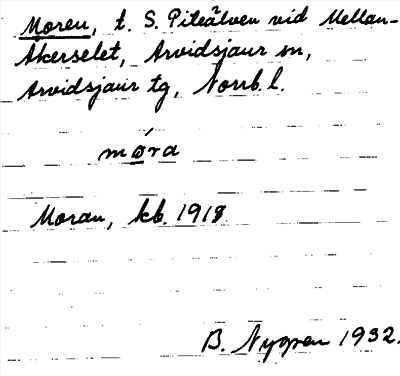 Moren, t. S. Piteälven vid Mellan-
Åkerselet, Arvidsjaur sn,
Arvidsjaur tg, Norrb. l.
mə́ra
Moran, kb 1918
B. Nygren 1932.